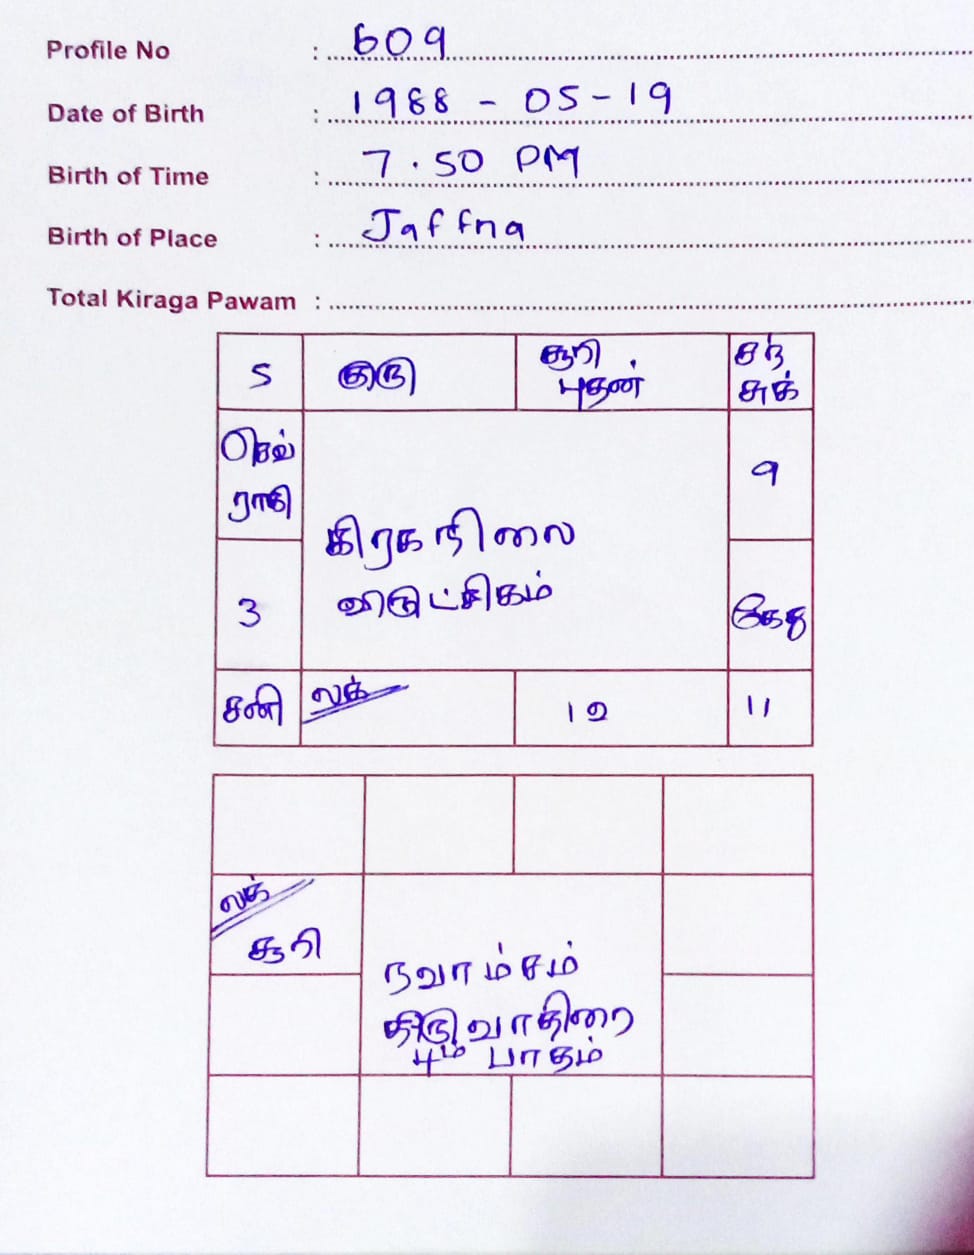 Profile No : 609
Date of Birth : 1988 - 05 - 19
Birth of Time : 7.50 PM
Birth of Place : Jaffna
Total Kiraga Pawam :
5 குரு சூரி சந்
புதன் சுக்
செவ் 9
ராகு
கிரகநிலை
3 விருட்சிகம் கேது
சனி லக் 12 11
லக்
சூரி
நவாம்சம்
திருவாதிரை
பாதம்